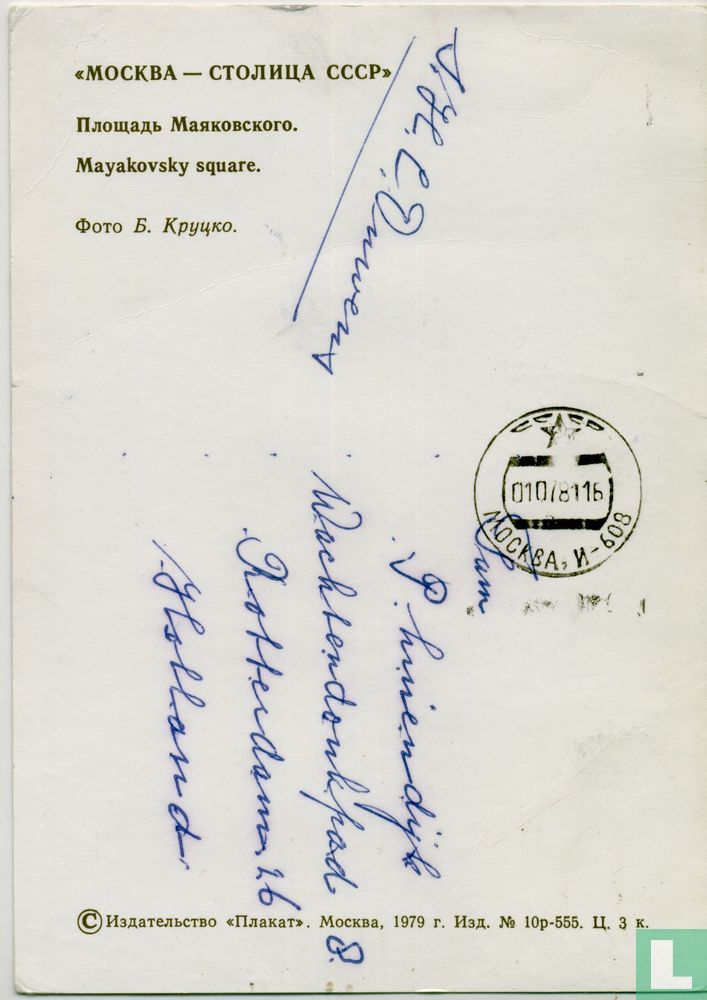 «МОСКВА — СТОЛИЦА СССР»
Площадь Маяковского.
Mayakovsky square.
Фото Б. Круцко.
СССР
01078116
МОСКВА, И-608
Fam
P.
Wachtendonkpad 8.
Rotterdam. 26
Holland.
© Издательство «Плакат». Москва, 1979 г. Изд. № 10р-555. Ц. 3 к.
L